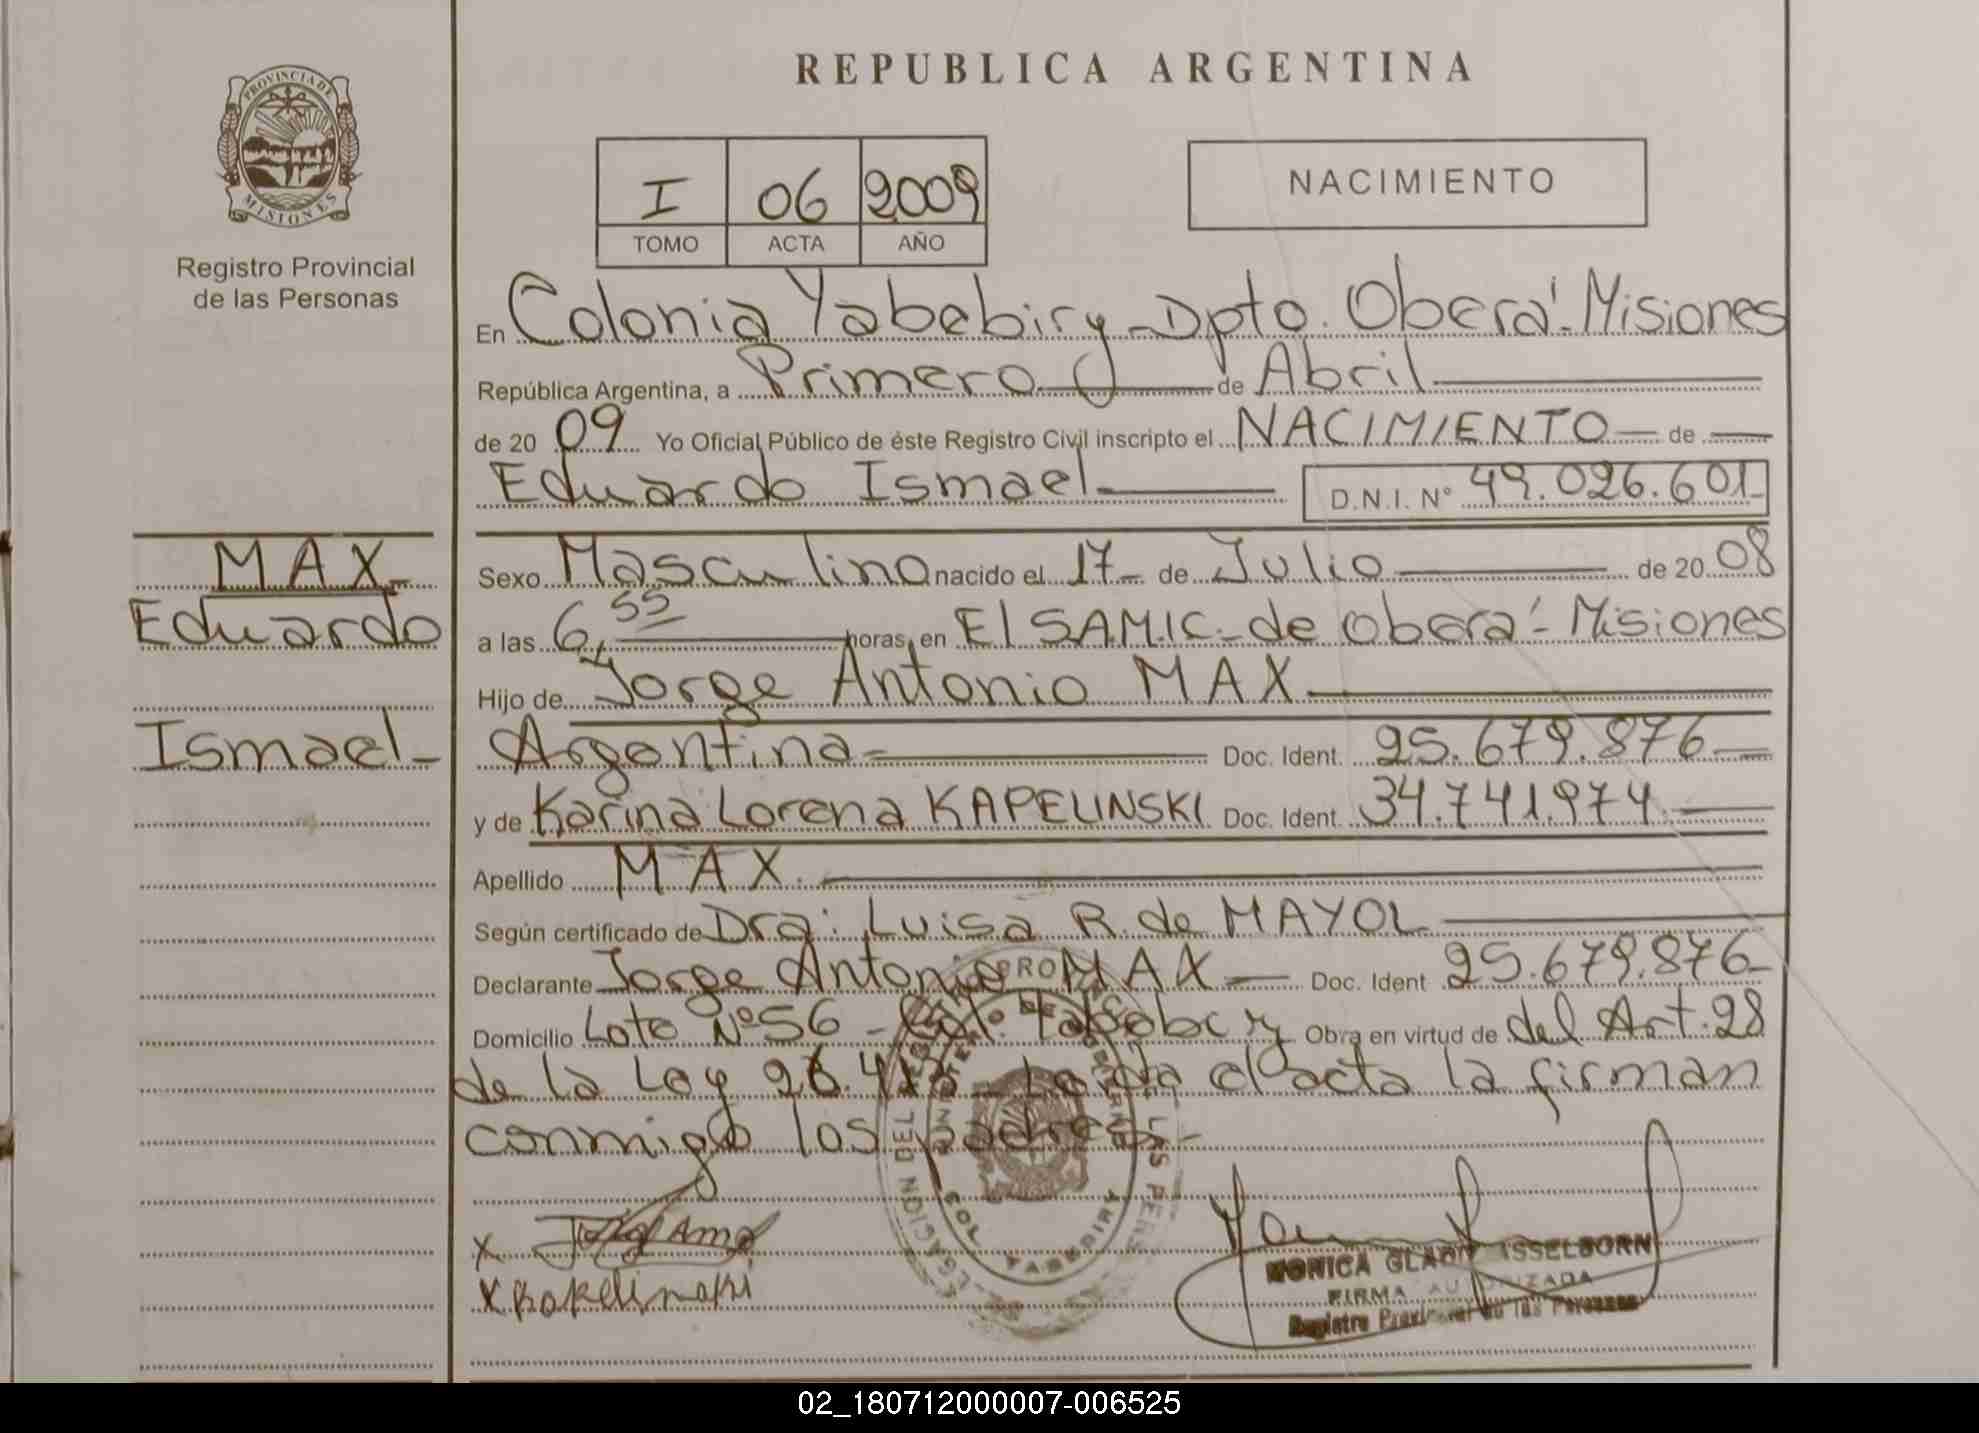 REPUBLICA ARGENTINA
PROVINCIA DE
MISIONES
Registro Provincial
de las Personas
I 06 2009
TOMO ACTA AÑO
NACIMIENTO
En Colonia Yabebiry - Dpto. Oberá - Misiones
República Argentina, a Primero de Abril
de 20 09 Yo Oficial Público de éste Registro Civil inscripto el NACIMIENTO de
Eduardo Ismael D.N.I. N° 49.026.601
MAX
Eduardo
Ismael
Sexo Masculino nacido el 17 de Julio de 20 08
a las 6,55 horas, en El SAMIC - de Oberá - Misiones
Hijo de Jorge Antonio MAX
Argentina Doc. Ident. 25.679.876
y de Karina Lorena KAPELINSKI Doc. Ident. 34.741.974
Apellido MAX
Según certificado de Dra: Luisa R. de MAYOL
Declarante Jorge Antonio MAX Doc. Ident 25.679.876
Domicilio Lote Nº 56 - Obra en virtud de del Art. 28
de la Ley 26.413 - Leída el acta la firman
conmigo los padres -
X
X Kapelinski
MONICA GLADIS
FIRMA AUTORIZADA
Registro Provincial de las Personas
02_180712000007-006525